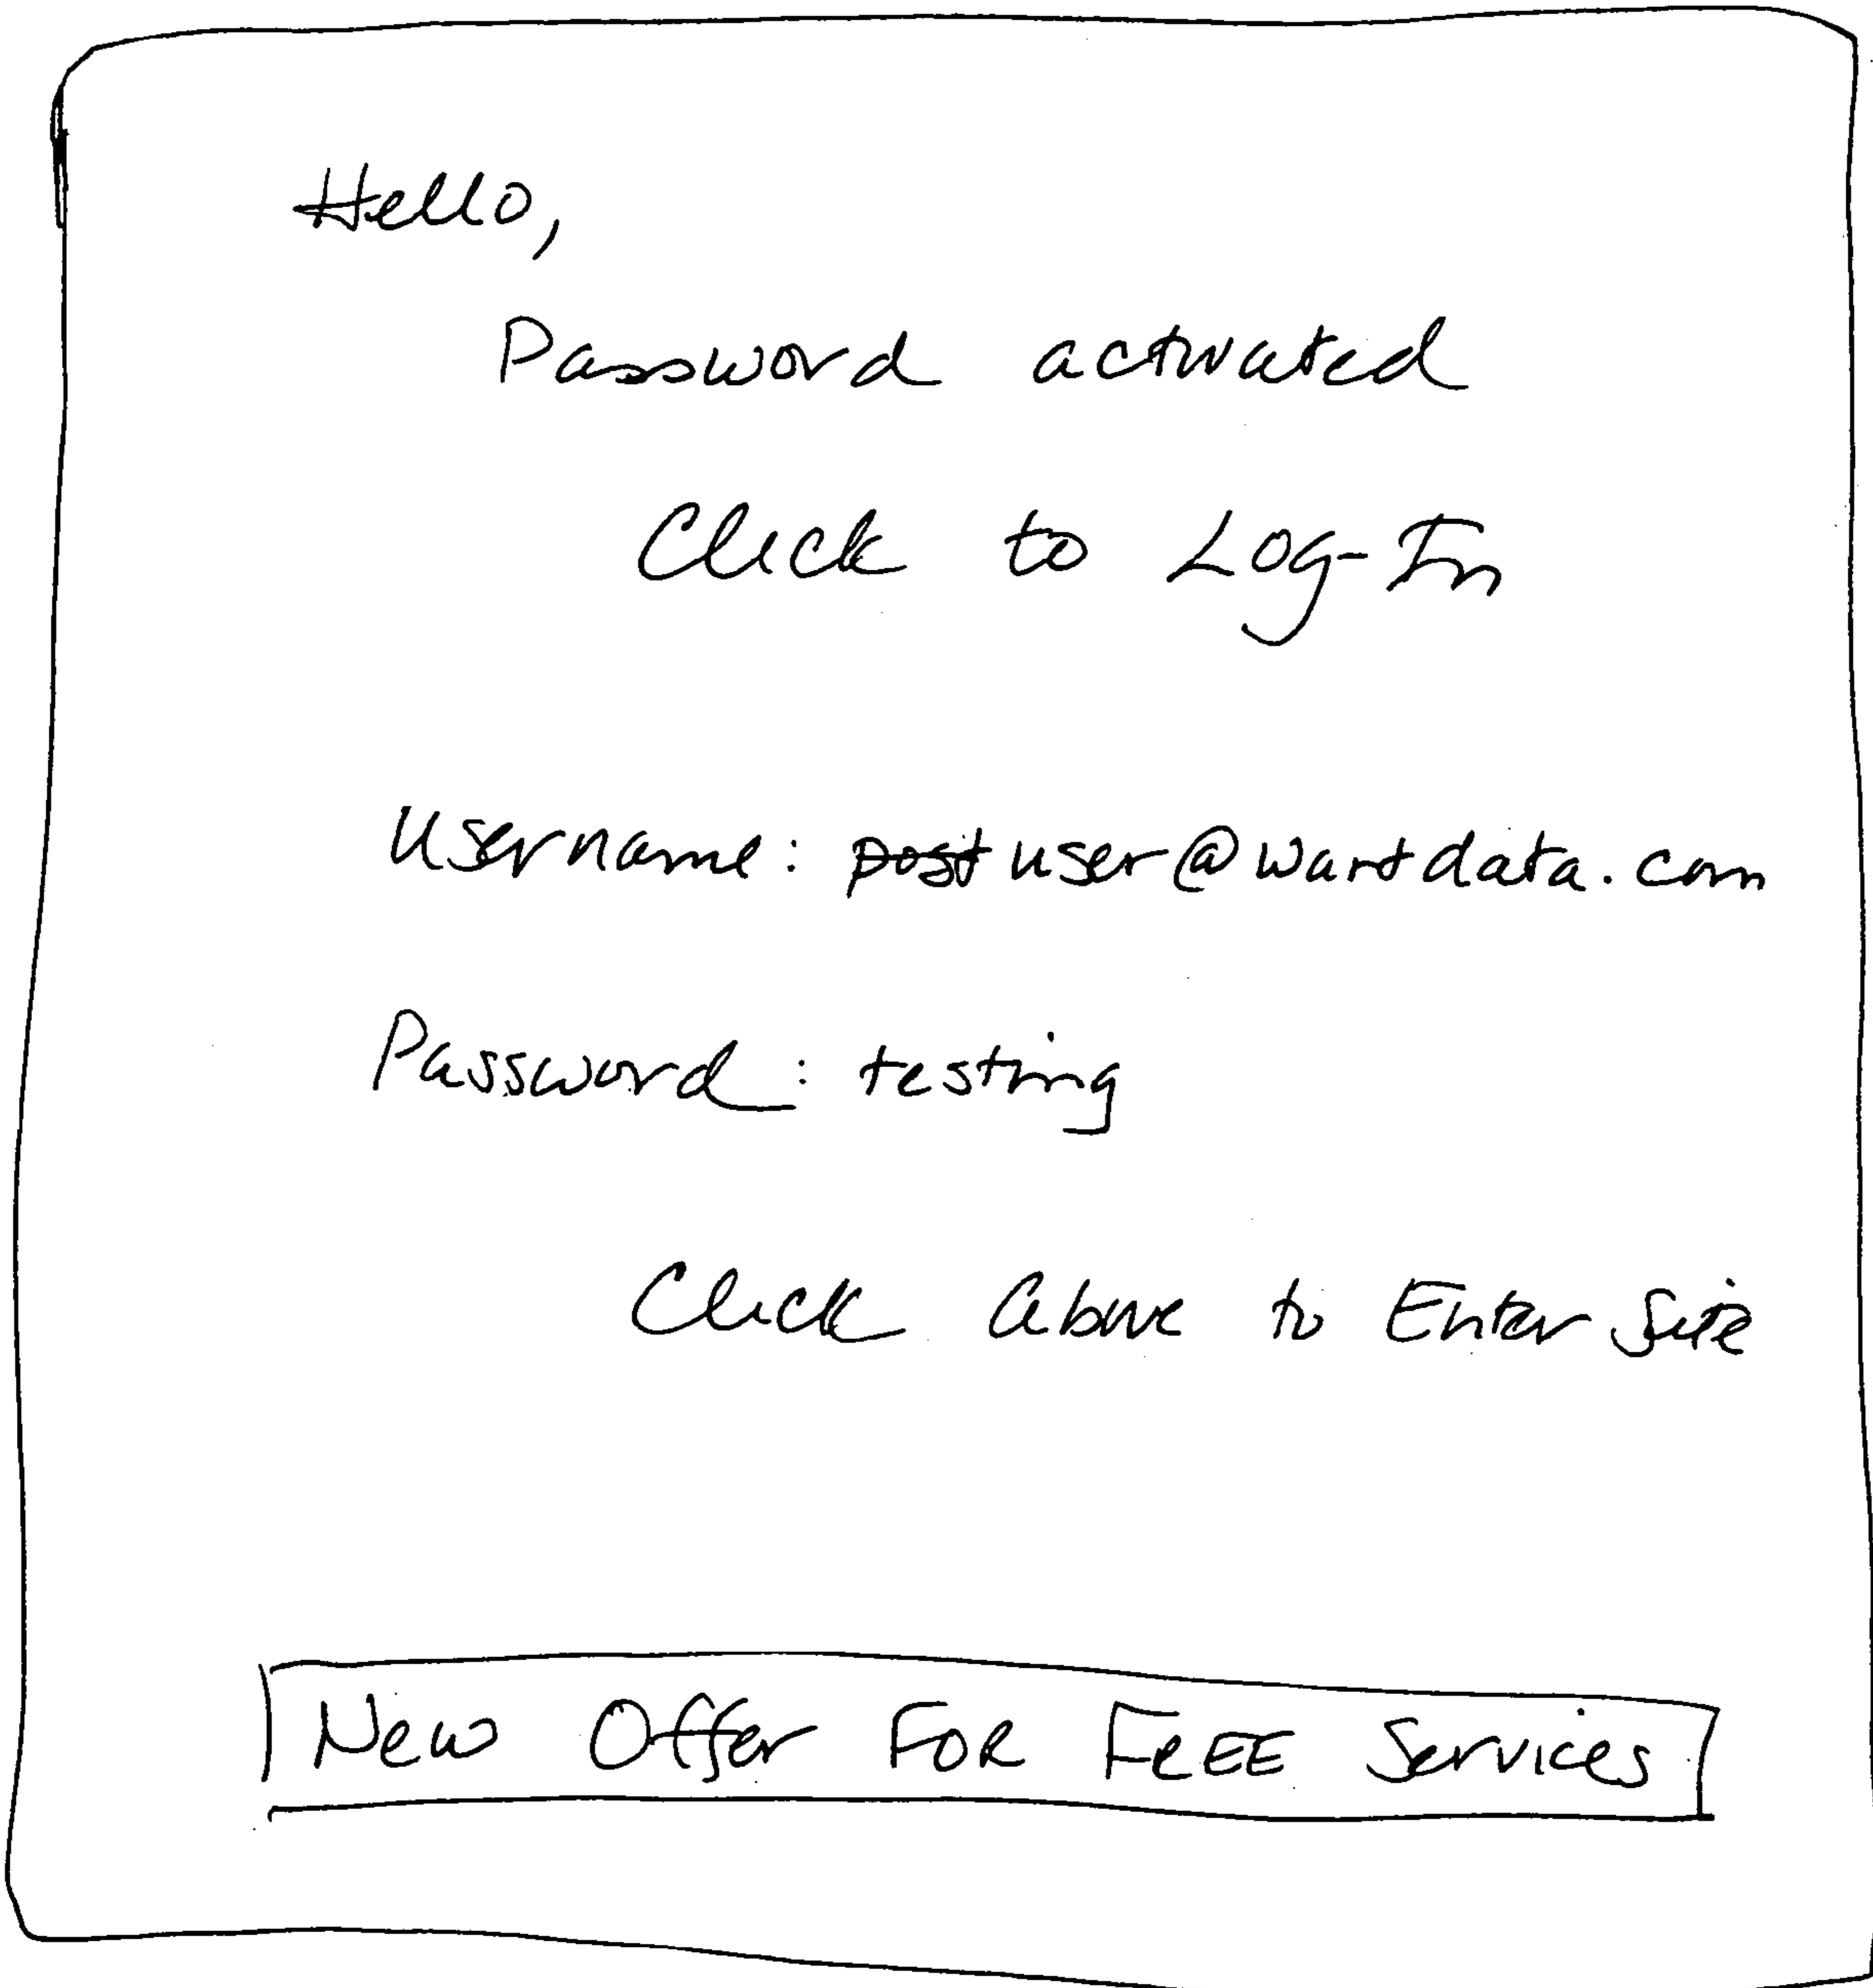 Hello,
Password activated
Click to Log-In
Username: postuser@wantdata.com
Password: testing
Click Above to Enter Site
New Offer FOR FREE Services